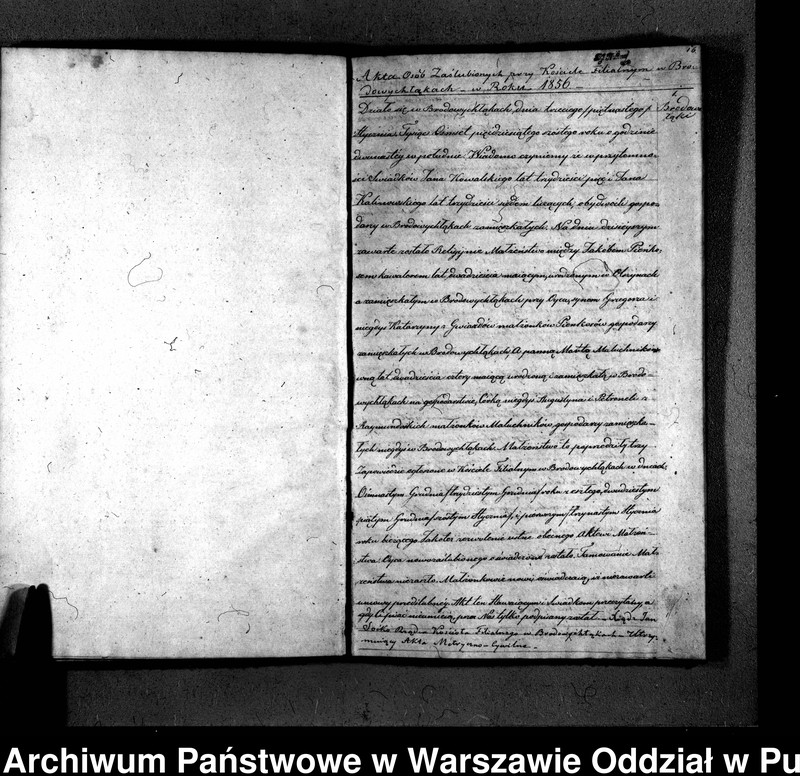 16
Akta Osób Zaślubionych przy Kościele Filialnym w Bro-
dowychłąkach w Roku 1856
1.
Brodowe
łąki
Działo się w Brodowychłąkach dnia trzeciego /piętnastego/
Stycznia Tysiąc Ośmset pięćdziesiątego szóstego roku o godzinie
dwunastej w południe. Wiadomo czyniemy że w przytomno-
ści Świadków Jana Kowalskiego lat trzydzieści pięć i Jana
Kalinowskiego lat trzydzieści siedem liczących, obydwóch gospo-
darzy w Brodowychłąkach zamieszkałych. Na dniu dzisiejszym
zawarte zostało Religijnie Małżeństwo między Jakobem
kawalerem lat dwadzieścia mającym, urodzonym w
a zamieszkałym w Brodowychłąkach przy Ojcu, synem Grzegorza i
niegdyś Katarzyny z Gwiazdów małżonków gospodarzy
zamieszkałych w Brodowychłąkach; A panną
lat dwadzieścia cztery mającą urodzoną i zamieszkałą w Brodo-
wychłąkach na gospodarstwie, Córką niegdyś Augustyna i Petroneli z
małżonków Maluchników gospodarzy zamieszka-
łych niegdyś w Brodowychłąkach. Małżeństwo to poprzedziły trzy
Zapowiedzie ogłoszone w Kościele Filialnym w Brodowychłąkach w dniach
Ośmnastym Grudnia /trzydziestym Grudnia/ roku zeszłego, dwudziestym
piątym Grudnia /szóstym Stycznia/, i pierwszym /trzynastym Stycznia
roku bieżącego. Jakoteż zezwolenie ustne obecnego Aktowi Małżeń-
stwa Ojca nowozaślubionego oświadczone zostało. Tamowanie Mał-
żeństwa nie zaszło. Małżonkowie nowi oświadczają, iż nie zawarli
umowy przedślubnej. Akt ten Stawającym i Świadkom przeczytany a
gdy ci pisać nie umieją przez Nas tylko podpisany został. Xiądz Jan
Rządca Kościoła Filialnego w Brodowychłąkach Utrzy-
mujący Akta Metryczno-Cywilne.
Archiwum Państwowe w Warszawie Oddział w Pu